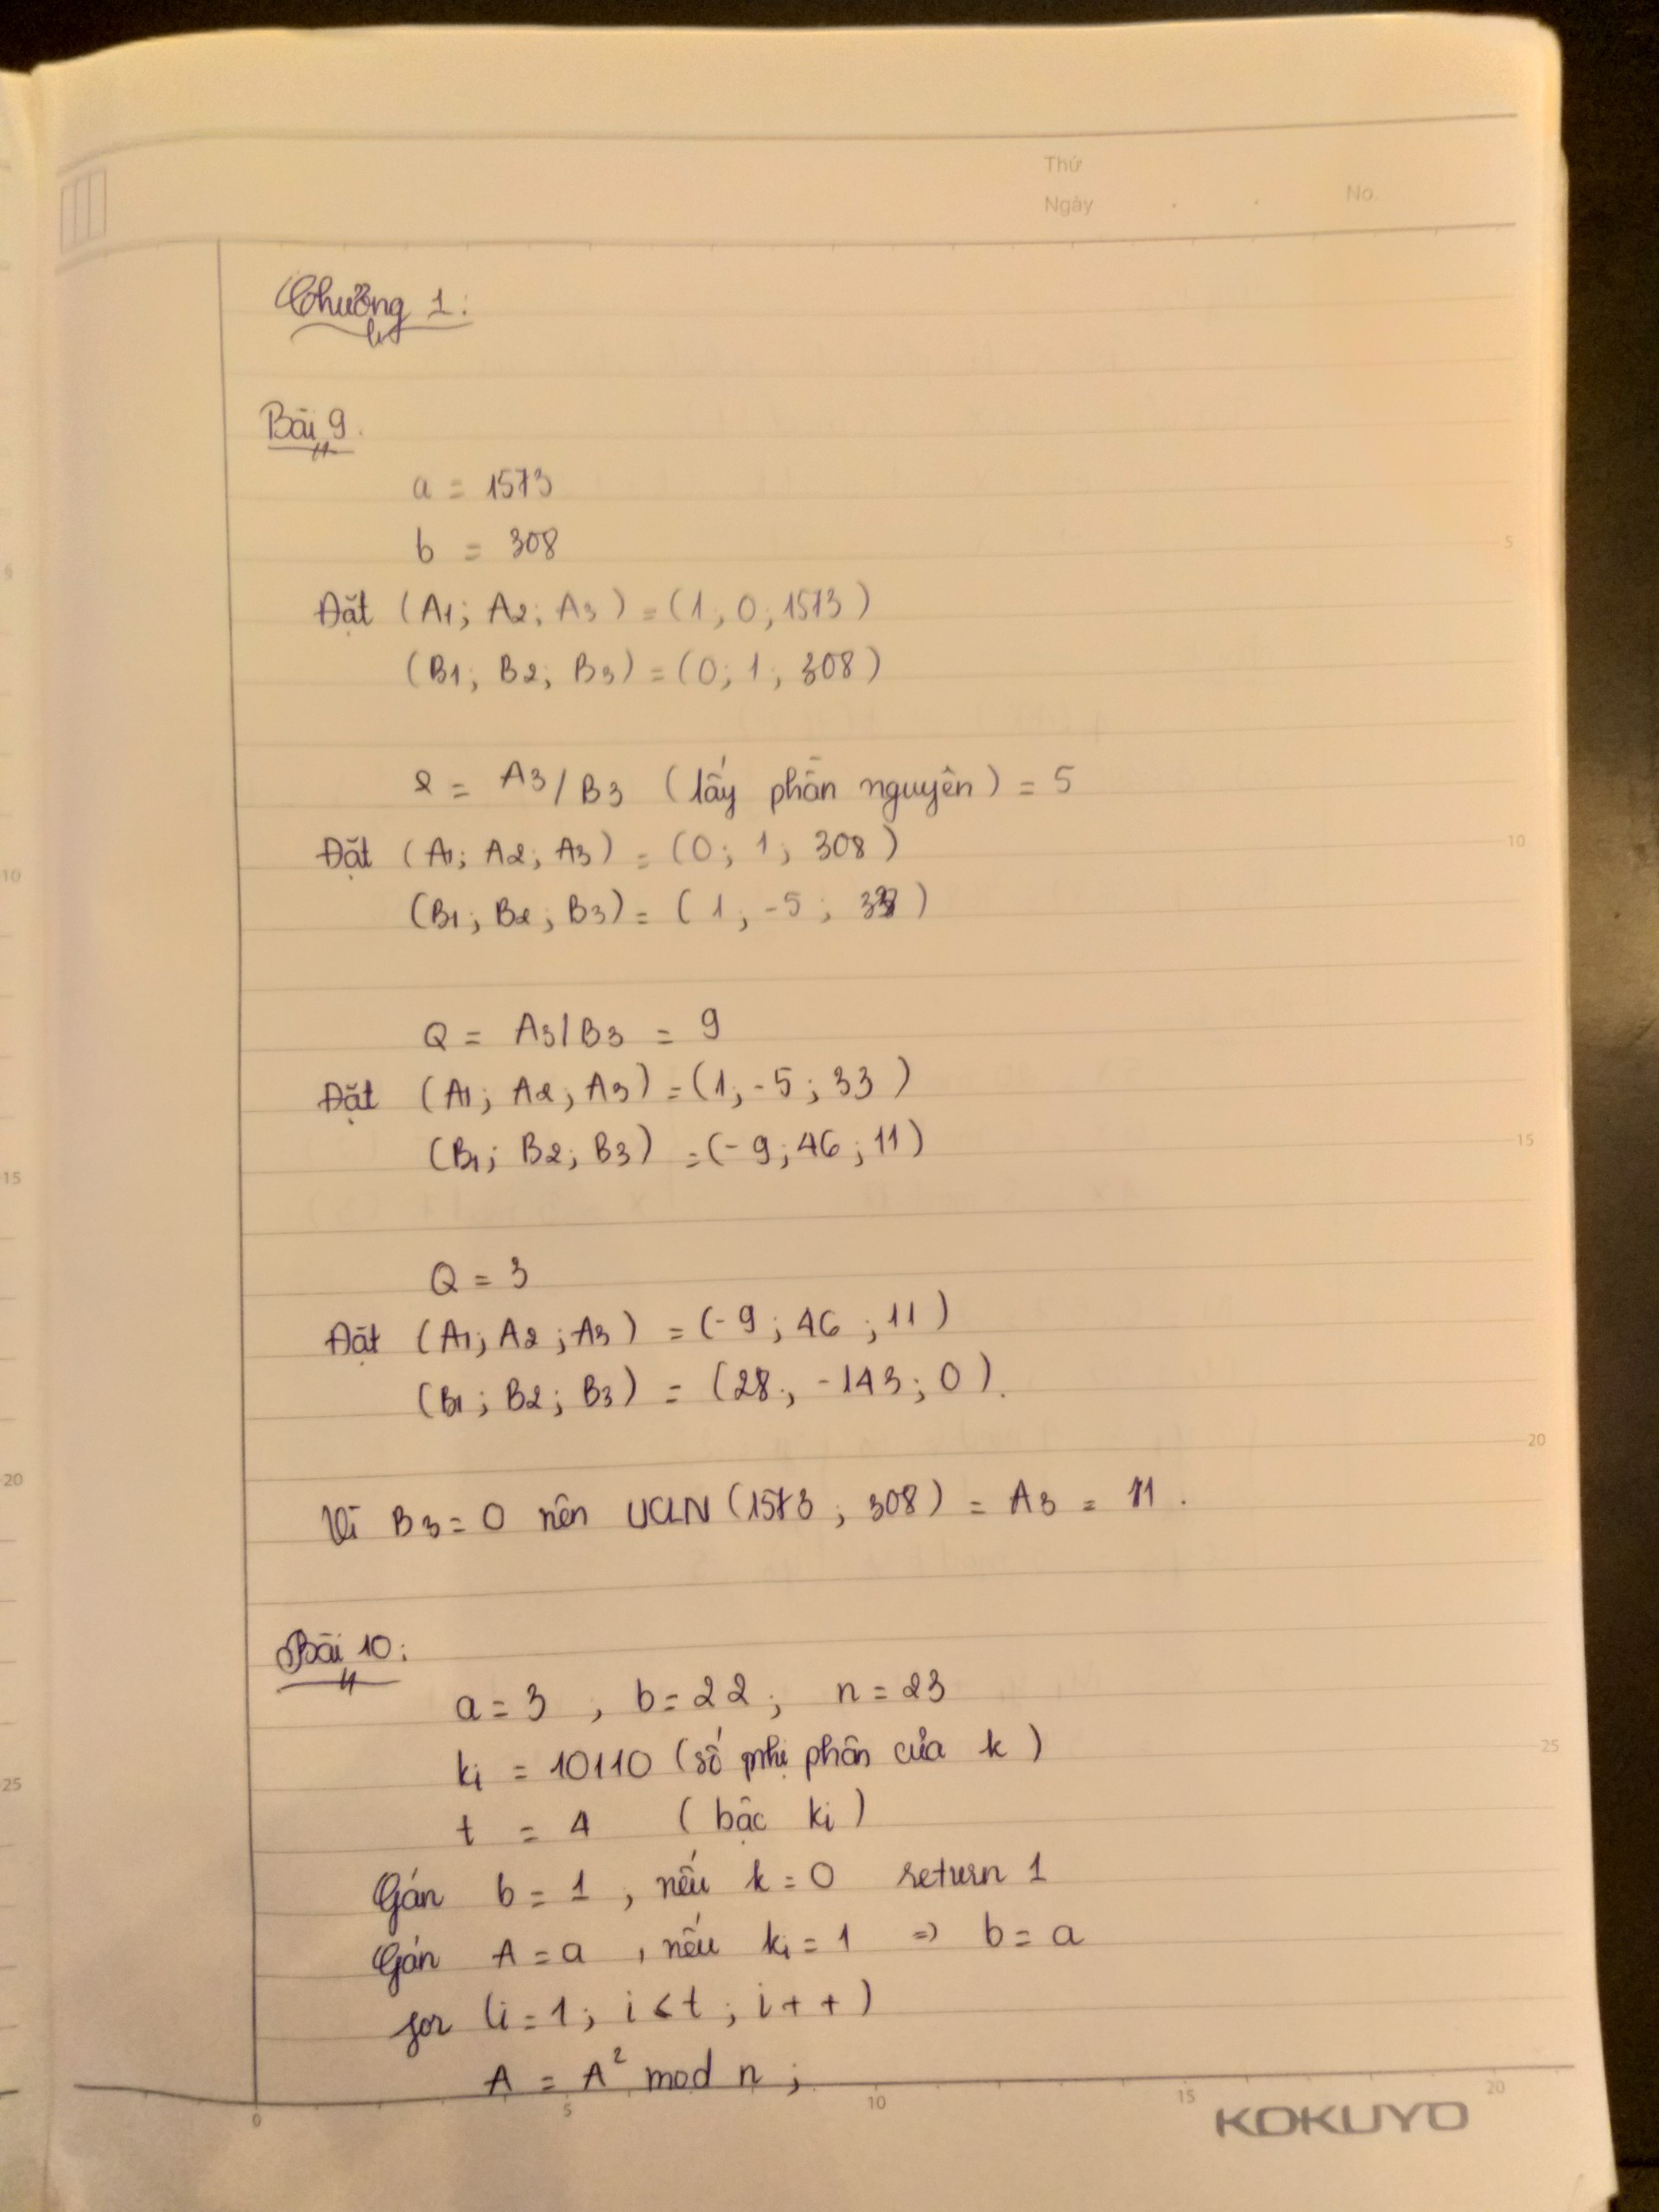 Thứ
Ngày . . No.
Chương 1:
Bài 9.
a = 1573
b = 308
Đặt (A1; A2; A3) = (1, 0; 1573)
(B1; B2; B3) = (0; 1; 308)
Q = A3/B3 (lấy phần nguyên) = 5
Đặt (A1; A2; A3) = (0; 1; 308)
(B1; B2; B3) = (1; -5; 33)
Q = A3/B3 = 9
Đặt (A1; A2; A3) = (1; -5; 33)
(B1; B2; B3) = (-9; 46; 11)
Q = 3
Đặt (A1; A2; A3) = (-9; 46; 11)
(B1; B2; B3) = (28; -143; 0).
Vì B3 = 0 nên UCLN (1573; 308) = A3 = 11.
Bài 10:
a = 3, b = 22; n = 23
ki = 10110 (số nhị phân của k)
t = 4 (bậc ki)
Gán b = 1, nếu k = 0 return 1
Gán A = a, nếu ki = 1 => b = a
for (i = 1; i < t; i++)
A = A² mod n;
0 5 10 15 20
KOKUYO